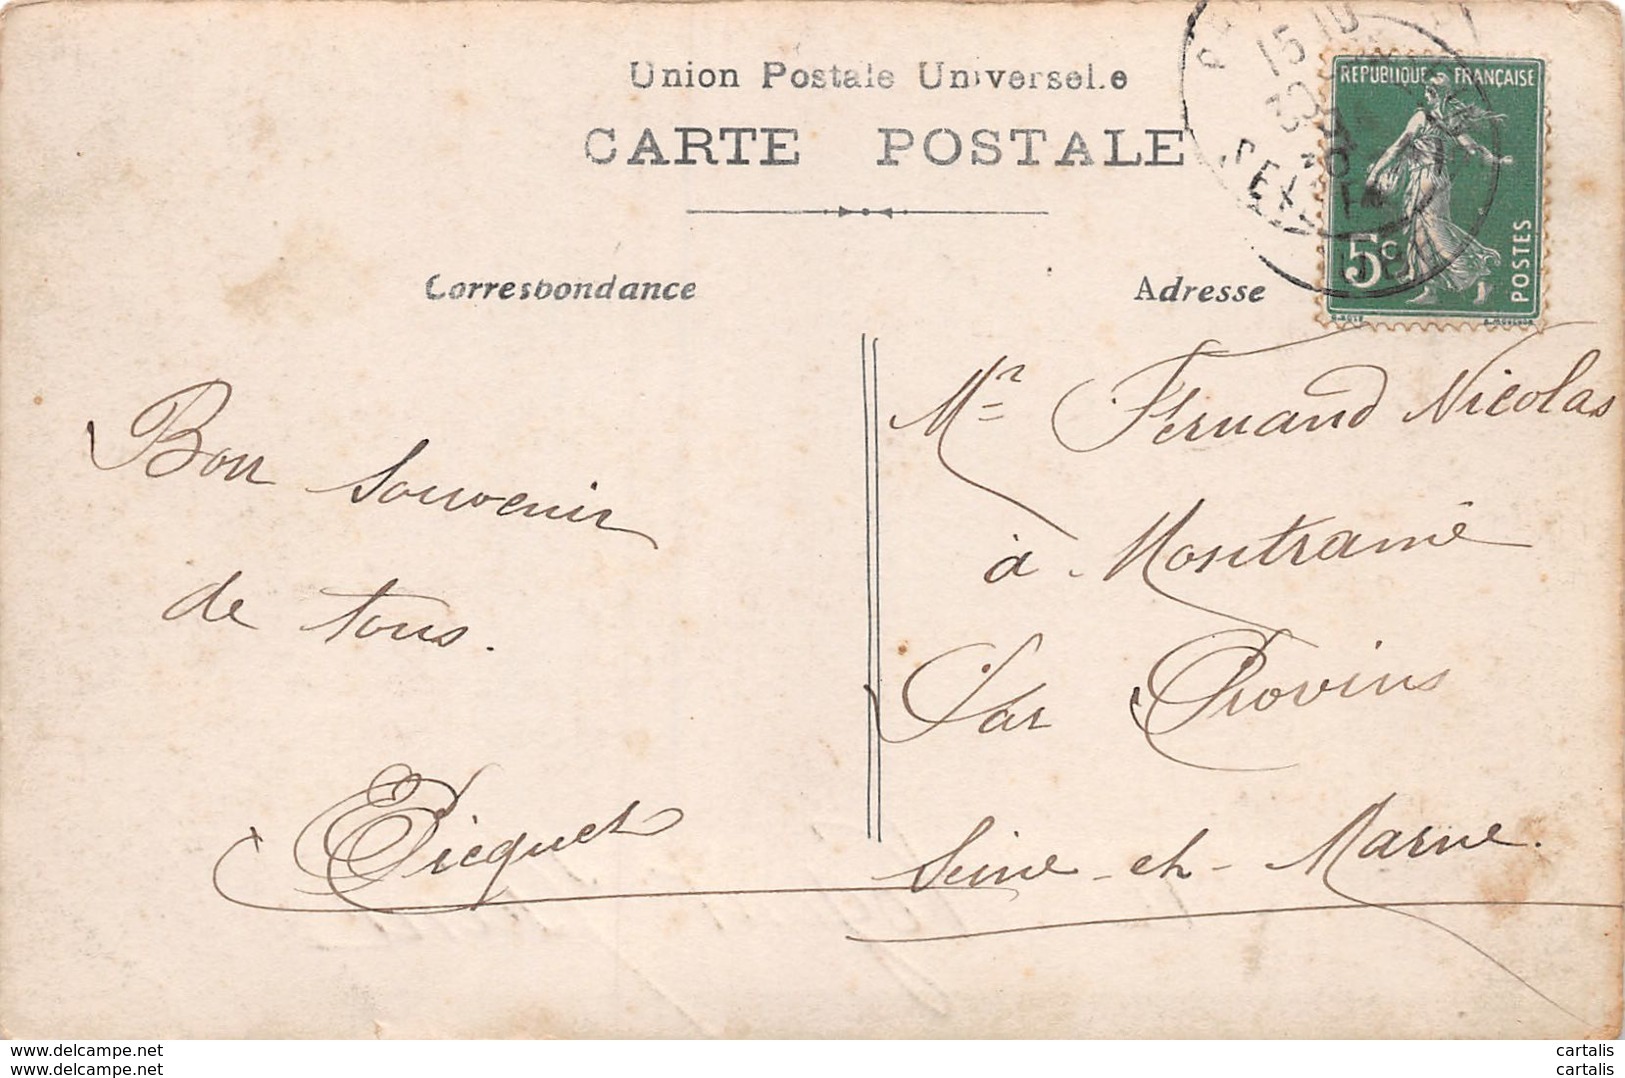 Union Postale Universelle
CARTE POSTALE
Correspondance
Adresse
REPUBLIQUE FRANÇAISE
5c
POSTES
15 10
30
Mr Fernand Nicolas
à Montramé
Par Provins
Seine-et-Marne.
Bon souvenir
de tous.
Picquet
www.delcampe.net
www.delcampe.net
cartalis
cartalis